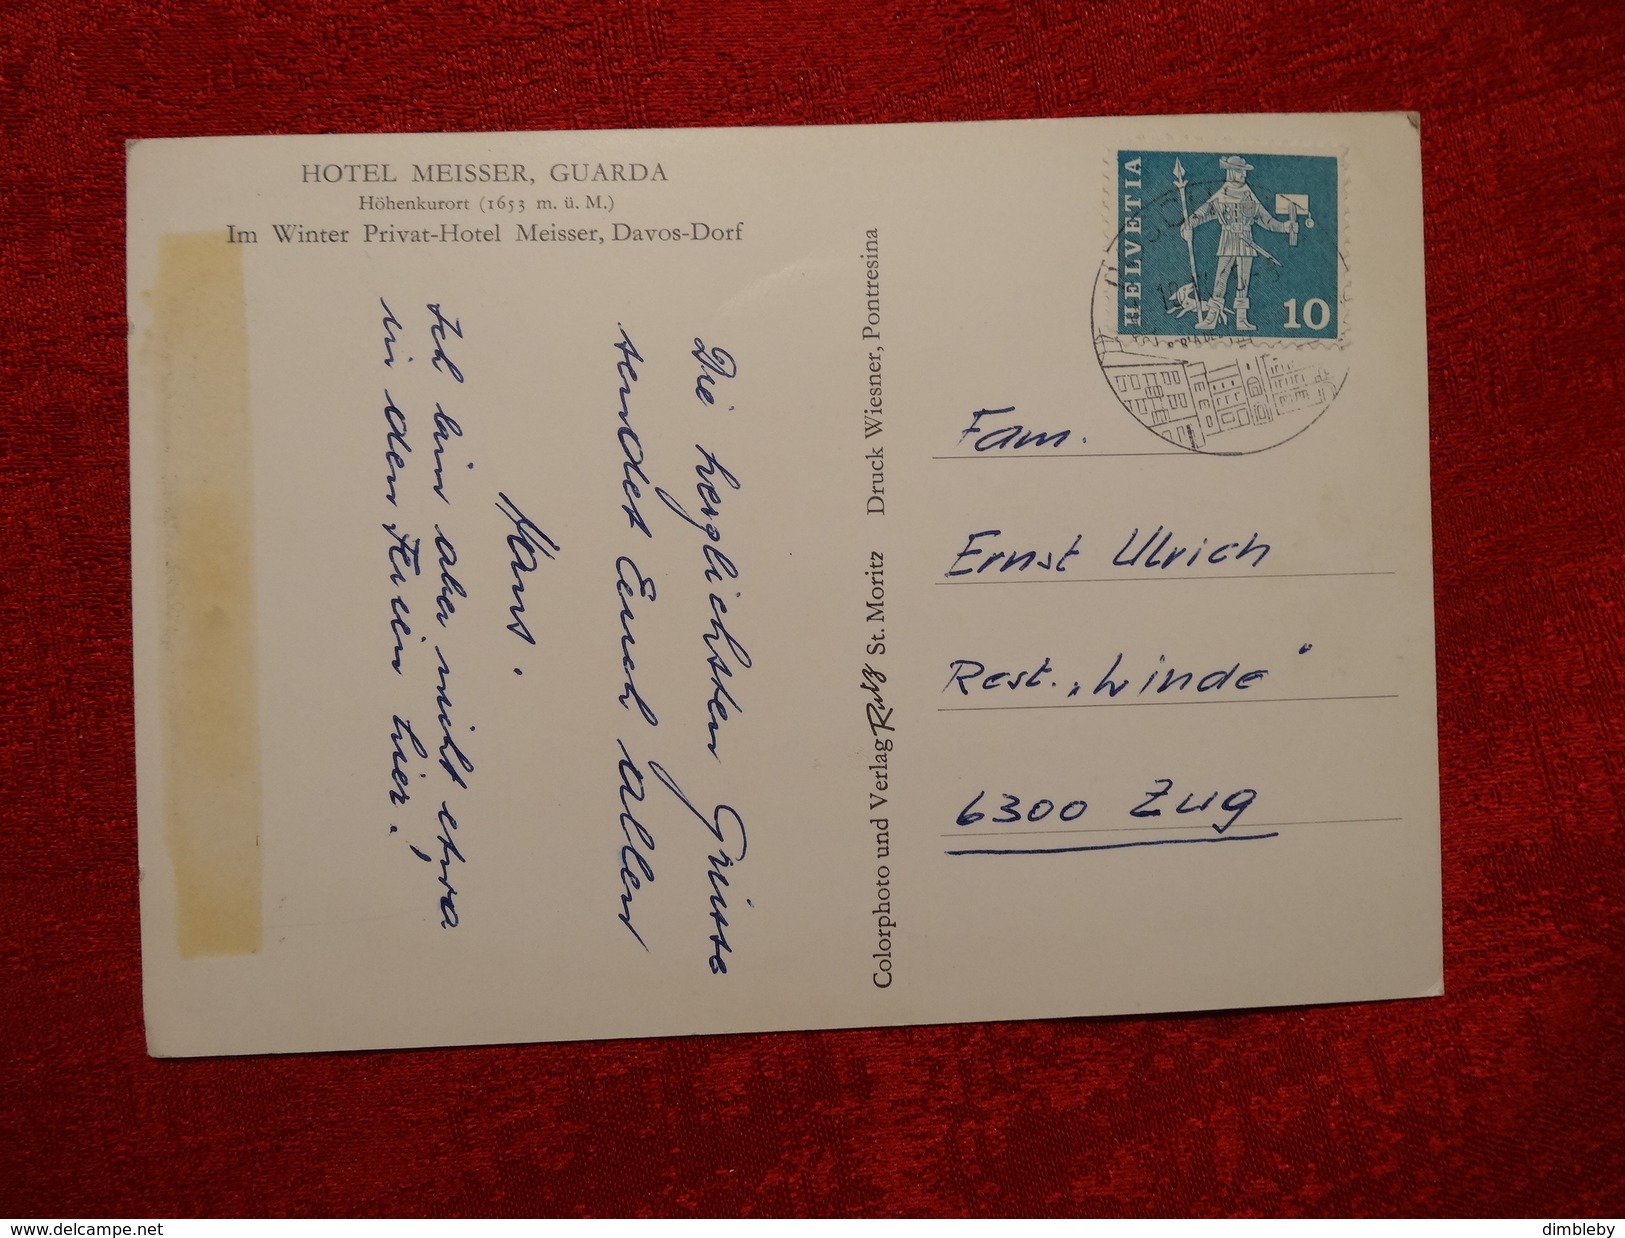 HOTEL MEISSER, GUARDA
Höhenkurort (1653 m. ü. M.)
Im Winter Privat-Hotel Meisser, Davos-Dorf
Die herzlichsten Grüsse
sendet Euch allen
Hans.
Ich bin aber nicht etwa
in den Ferien hier!
Colorphoto und Verlag St. Moritz Druck Wiesner, Pontresina
HELVETIA
10
Fam.
Ernst Ulrich
Rest. „Linde“
6300 Zug
https://www.delcampe.net
dimbleby